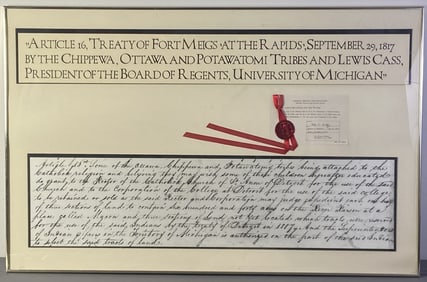 "ARTICLE 16, TREATY OF FORT MEIGS "AT THE RAPIDS", SEPTEMBER 29, 1817
BY THE CHIPPEWA, OTTAWA AND POTAWATOMI TRIBES AND LEWIS CASS,
PRESIDENT OF THE BOARD OF REGENTS, UNIVERSITY OF MICHIGAN"
Some of the Ottawa Chippewa and Potawatomy tribes being attached to the
Catholick religion and believing they may wish some of their children hereafter educated
do grant to the Rector of the Catholick Church of St Anne of Detroit for the use of the said
Church and to the Corporation of the College at Detroit for the use of the said College
to be retained or sold as the said Rector and Corporation may judge expedient each one half
of three sections of land to contain six hundred and forty acres on the River Raisin at a
place called Macon and three sections of land not yet located which tracts were reserved
for the use of the said Indians by the treaty of Detroit in 1807. And the Superintendent
of Indian affairs in the Territory of Michigan is authorized on the part of the said Indians
to select the said tracts of land.